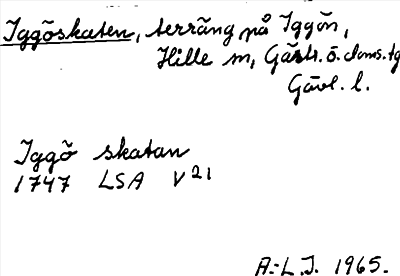 Iggöskaten, terräng på Iggön,
Hille sn, Gästr. ö. doms. tg
Gävl. l.
Iggö skatan
1747 LSA V21
A.-L.J. 1965.